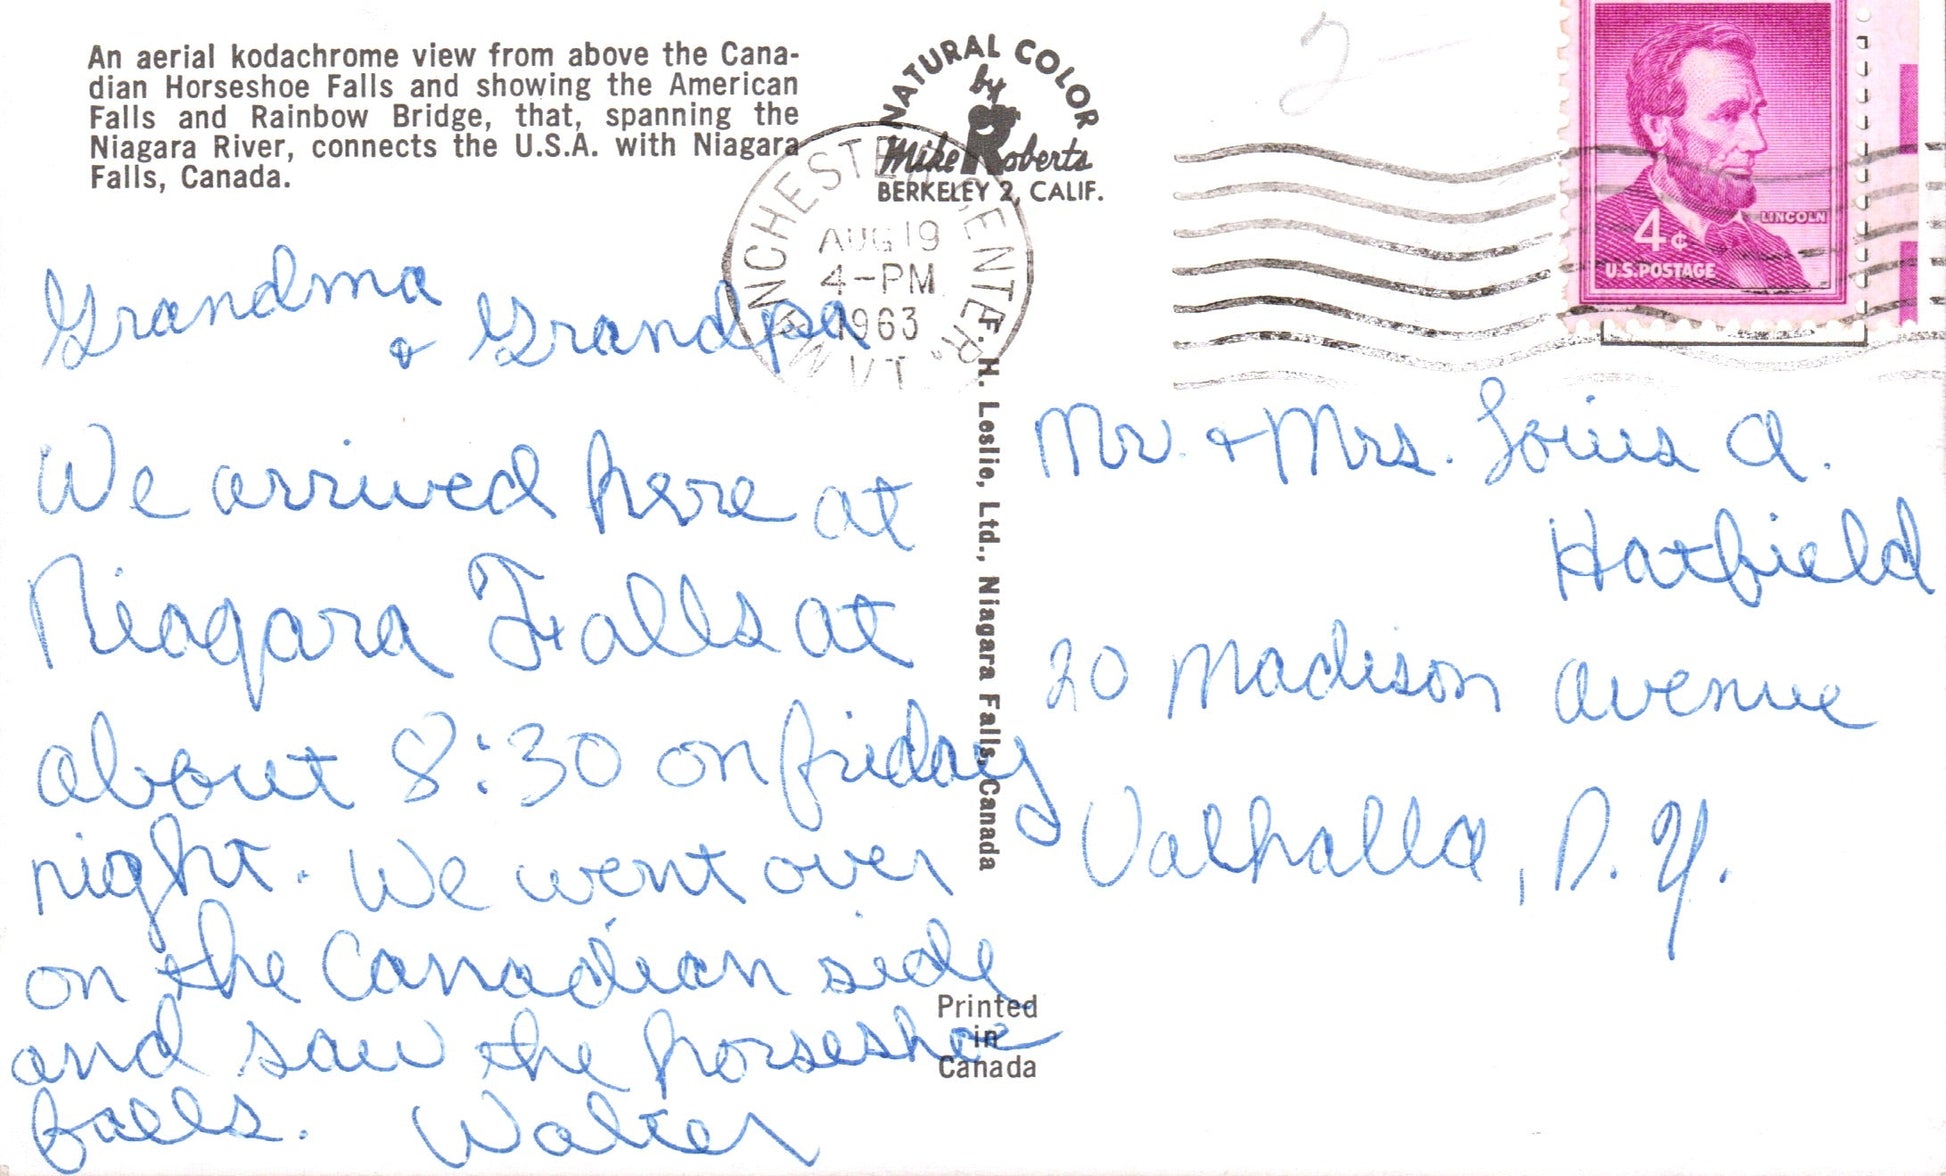 An aerial kodachrome view from above the Cana-
dian Horseshoe Falls and showing the American
Falls and Rainbow Bridge, that, spanning the
Niagara River, connects the U.S.A. with Niagara
Falls, Canada.
NATURAL COLOR
by
Mike Roberts
BERKELEY 2, CALIF.
2
MANCHESTER CENTER
AUG 19
4-PM
1963
VT.
LINCOLN
4¢
U.S.POSTAGE
Grandma
& Grandpa
We arrived here at
Niagara Falls at
about 8:30 on friday
night. We went over
on the Canadian side
and saw the horseshoe
falls. Walter
F. H. Leslie, Ltd., Niagara Falls, Canada
Printed
in
Canada
Mr. & Mrs. Louis A.
Hatfield
20 Madison Avenue
Valhalla, N. Y.